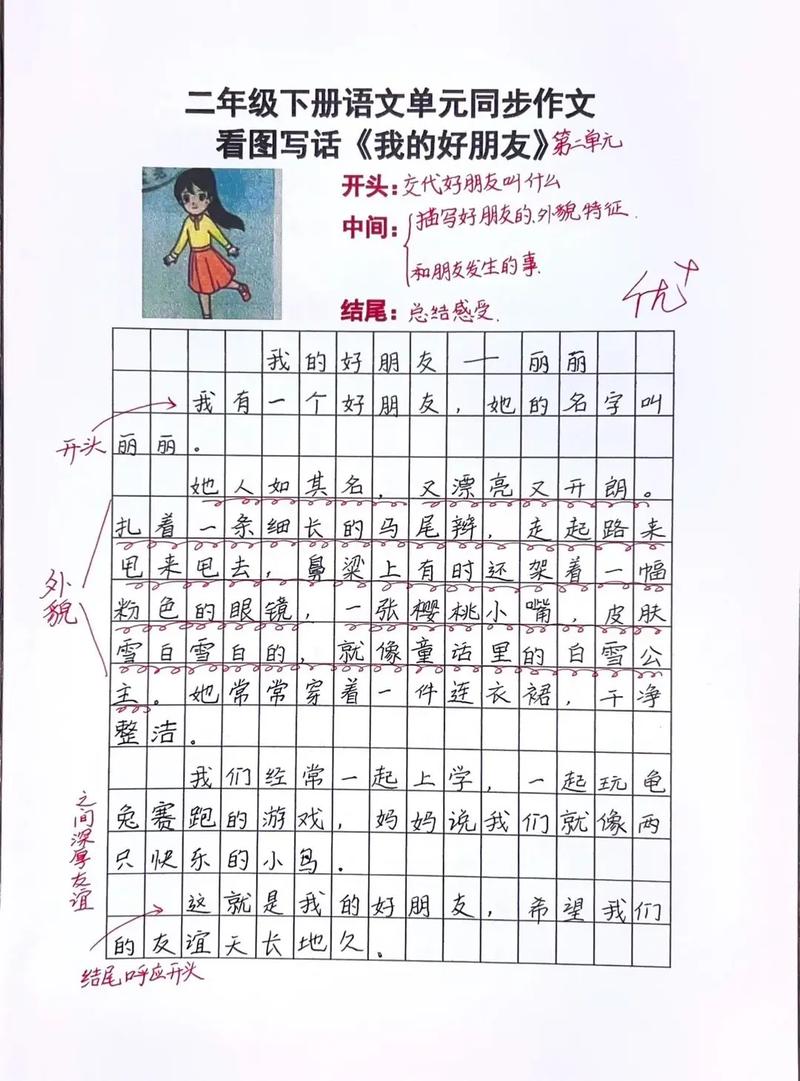 二年级下册语文单元同步作文
看图写话《我的好朋友》第二单元
开头:交代好朋友叫什么
中间:描写好朋友的外貌特征.
和朋友发生的事.
结尾:总结感受.
优+
我的好朋友——丽丽
我有一个好朋友,她的名字叫
开头
丽丽。
她人如其名,又漂亮又开朗。
扎着一条细长的马尾辫,走起路来
甩来甩去,鼻梁上有时还架着一幅
外貌
粉色的眼镜,一张樱桃小嘴,皮肤
雪白雪白的,就像童话里的白雪公
主。她常常穿着一件连衣裙,干净
整洁。
我们经常一起上学,一起玩龟
兔赛跑的游戏,妈妈说我们就像两
只快乐的小鸟.
之间深厚友谊
这就是我的好朋友,希望我们
的友谊天长地久.
结尾呼应开头